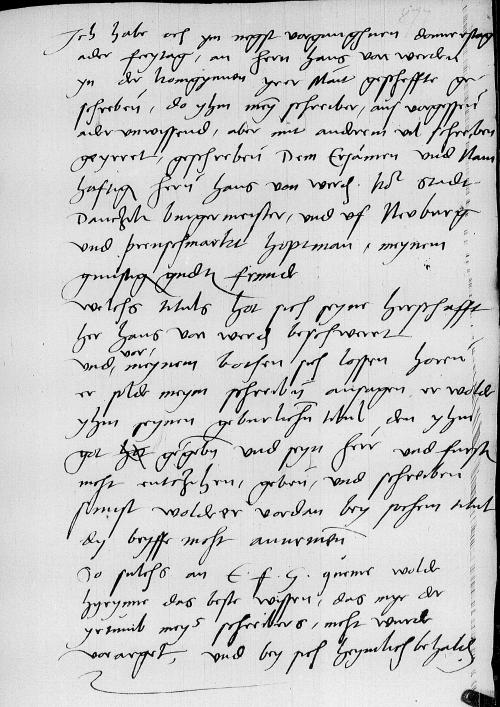 Ich habe och ym negst vorganghnen donnerstag
ader freytag, an hern hans von werden
yn der konigynnen yrer Mait gescheffte ge-
schreben, do yhm meyn schreiber, aus vorgessen
ader unwissend, aber mit anderem vil schreiben
geyrret, geschreben Dem Ersamen und Nam
haftig hern hans von werd. der Stadt
Danczik burgermeister, und uf Neuburg
und preuschmarkt hoptman, meynem
gunstig gudten frunde
welchs tituls hot sich seyne herschafft
her hans von werd beschweret
und vor meynem bothen sich lossen horen
er solde meym schreiben ansagen er wolde
yhm seynen geburlichen titul den yhm
got gegeben und seyn herr und furst
nicht entczihen, geben, und schreiben
sunst wolde er vordan bey sichem titul
dy bryffe nicht annemen
So sulchs an E. f. G. queme wolde
hyrynne das beste wissen, das mye der
yrtumb meyns schreibers, nicht wurde
vorarget, und bey sich heymlich behalden